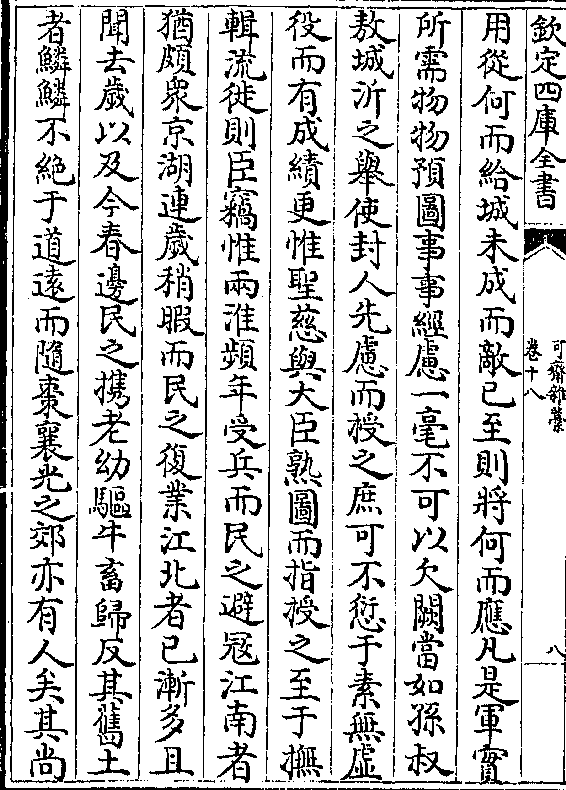 欽定四庫全書
可齋雜藁
卷十八
八
用從何而給城未成而敵已至則將何而應凡是軍實
所需物物預圖事事經慮一毫不可以欠闕當如孫叔
敖城沂之舉使封人先慮而授之庶可不愆于素無虛
役而有成績更惟聖慈與大臣熟圖而指授之至于撫
輯流徙則臣竊惟兩淮頻年受兵而民之避冦江南者
猶頗衆京湖連歲稍暇而民之復業江北者已漸多且
聞去歲以及今春邊民之攜老幼驅牛畜歸反其舊土
者鱗鱗不絶于道遠而隨棗襄光之郊亦有人矣其尚